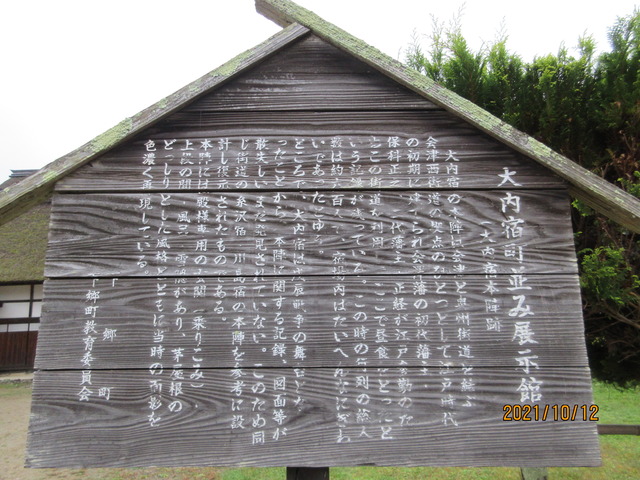 大内宿町並み展示館
（大内宿本陣跡）
大内宿の本陣は会津と奥州街道を結ぶ
会津西街道の拠点のひとつとして江戸時代
の初期に建てられ会津藩の初代藩主
保科正之、二代藩主 正経が江戸参勤のた
めこの街道を利用し、ここで昼食をとったと
いう記録が残っている。この時の行列の総人
数は約六百人で、宿場内はたいへんなにぎわ
いであったという。
ところで、大内宿は戊辰戦争の舞台とな
ったことから 本陣に関する記録、図面等が
散失しいまだ発見されていない。このため同
じ街道の糸沢宿、川島宿の本陣を参考に設
計し復元されたものである。
本陣には殿様専用の玄関（乗りこみ）、
上段の間、風呂、雪隠があり、茅屋根の
どっしりとした風格とともに当時の面影を
色濃く再現している。
下郷町
下郷町教育委員会
2021/10/12